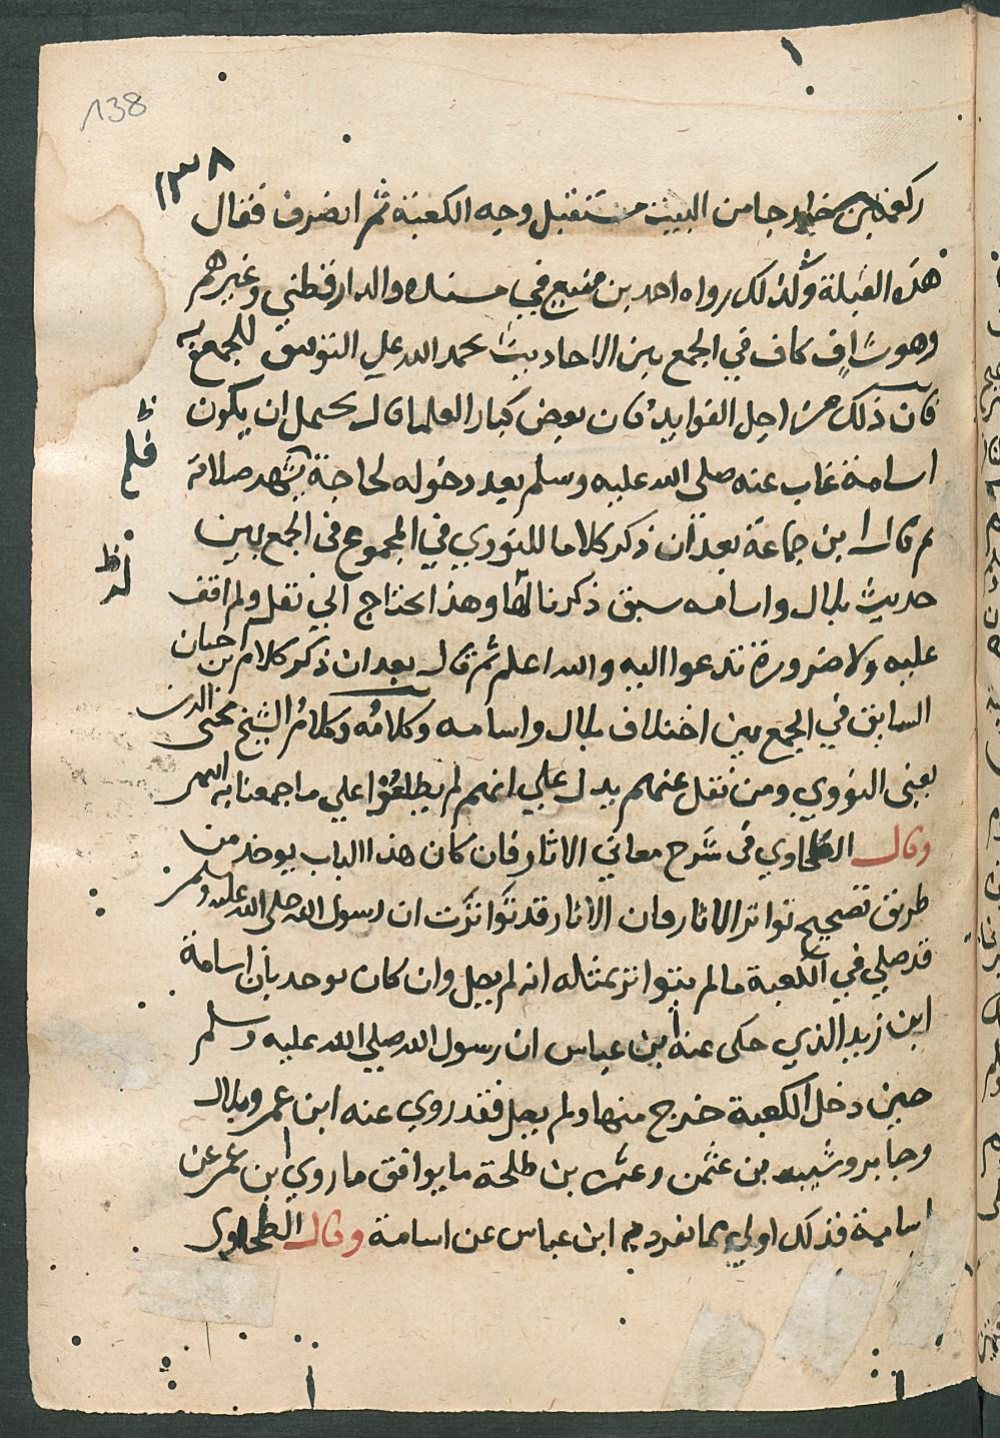 138
١٣٨
ركعتين خارجا من البيت مستقبل وجه الكعبة ثم انصرف فقال
هذه القبلة وكذلك رواه احمد بن منيع في مسنده والدارقطني وغيرهم
وهو شاف كاف في الجمع بين الاحاديث بحمد الله علي التوفيق للجمع به
فان ذلك من اجل الفوايد فان بعض كبار العلما قال يحتمل ان يكون
اسامة غاب عنه صلى الله عليه وسلم بعد دخوله لحاجة فلم يشهد صلاته
ثم قال ابن جماعة بعد ان ذكر كلاما للنووي في المجموع في الجمع بين
حديث بلال واسامه سبق ذكرنا لها وهذا يحتاج الي نقل ولم اقف
عليه ولا ضرورة تدعوا اليه والله اعلم ثم قال بعد ان ذكر كلام بن حبان
السابق في الجمع بين اختلاف بلال واسامه وكلامه وكلام الشيخ محيى الدين
يعنى النووي ومن نقل عنهم يدل علي انهم لم يطلعوا علي ما جمعنا به انتهى
وقال الطحاوي في شرح معاني الاثار فان كان هذا الباب يوخذ من
طريق تصحيح تواتر الاثار فان الاثار قد تواترت ان رسول الله صلى الله عليه وسلم
قد صلي في الكعبة ما لم يتواتر بمثله انه لم يصل وان كان يوخذ بان اسامة
ابن زيد الذي حكى عنه ابن عباس ان رسول الله صلي الله عليه وسلم
حين دخل الكعبة خرج منها ولم يصل فقد روي عنه ابن عمر وبلال
وجابر وشيبه بن عثمن وعثمن بن طلحة ما يوافق ما روي ابن عمر عن
اسامة فذلك اولي مما تفرد به ابن عباس عن اسامة وقال الطحاوى